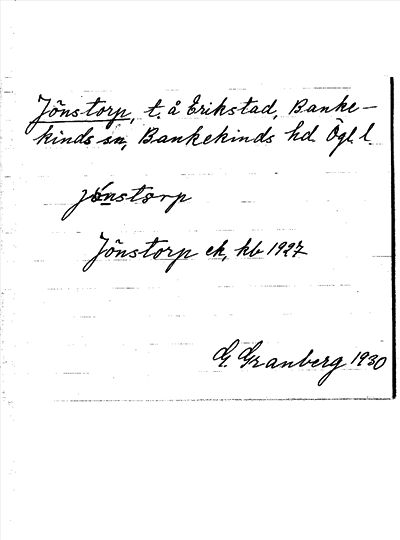 Jönstorp, t. å Erikstad, Banke-
kinds sn, Bankekinds hd. Ögl. l.
jónstorp
Jönstorp ek, kb 1927
G. Granberg 1930